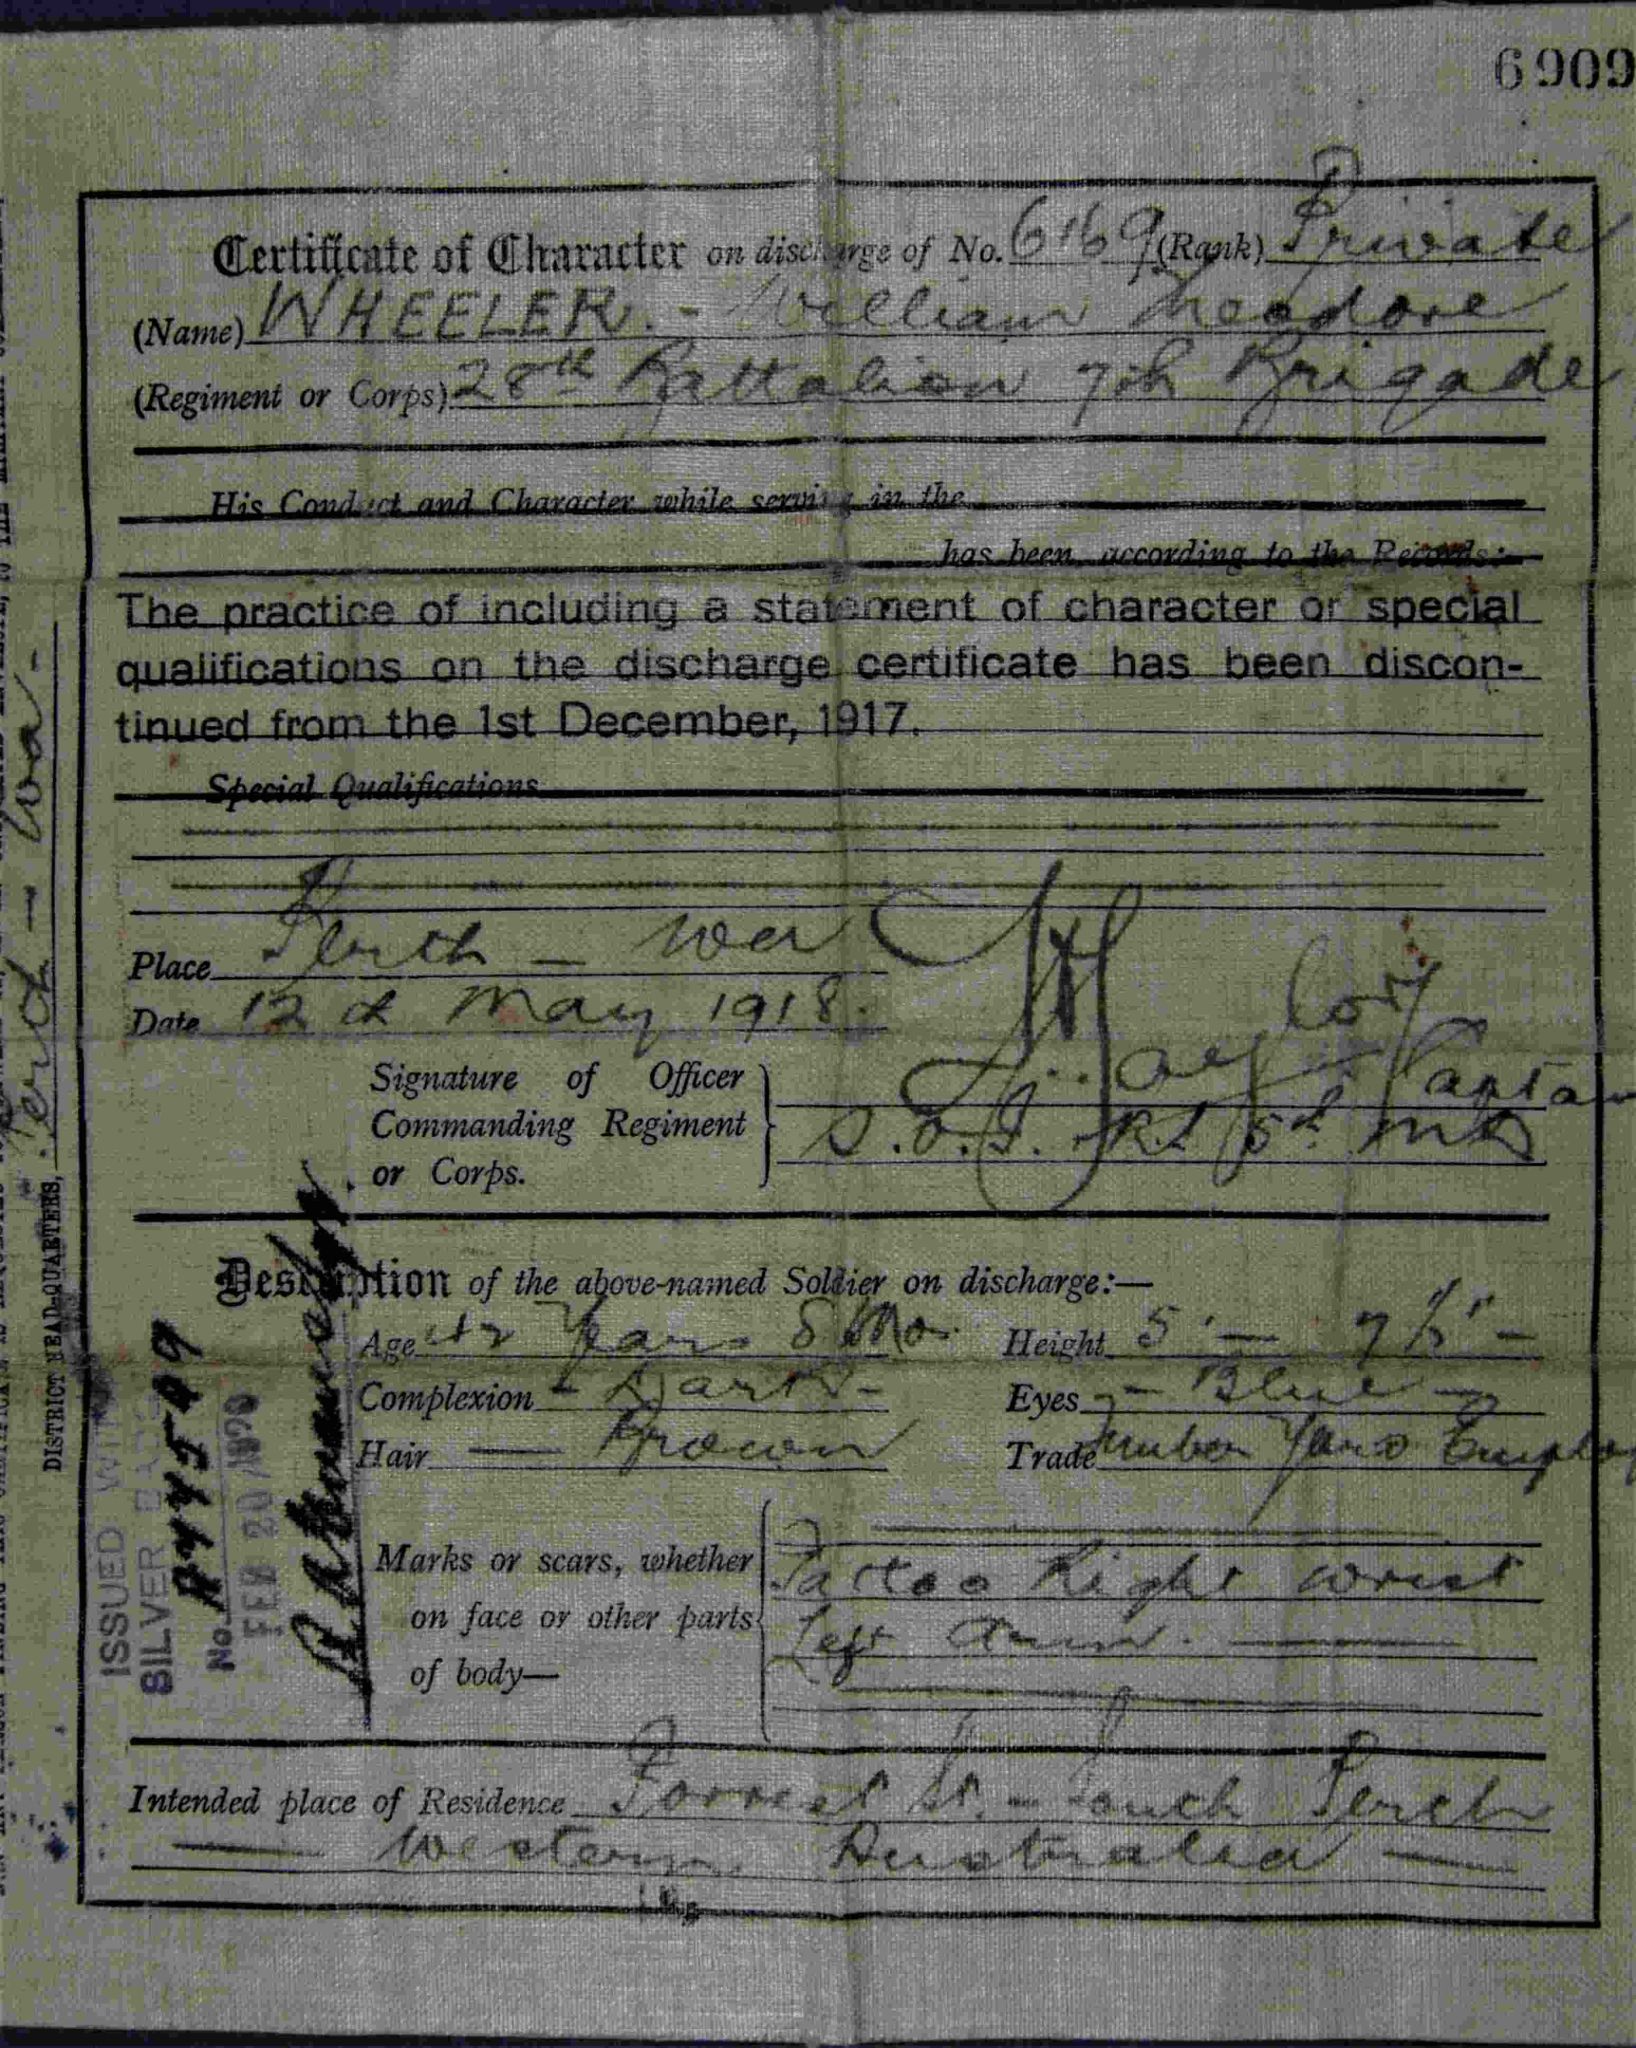 6909
Certificate of Character on discharge of No. 6169 (Rank) Private
(Name) WHEELER. - William Theodore
(Regiment or Corps) 28th Battalion 7th Brigade
His Conduct and Character while serving in the
has been, according to the Records:-
The practice of including a statement of character or special
qualifications on the discharge certificate has been discon-
tinued from the 1st December, 1917.
Special Qualifications
Place Perth - Wa
Date 12th May 1918.
Signature of Officer
Commanding Regiment
or Corps.
Captain
S.O.I. & R.S 5th MD
Description of the above-named Soldier on discharge:—
Age 42 Years 8 Mo. Height 5' - 7½" -
Complexion - Dark - Eyes - Blue -
Hair — Brown Trade Timber Yard Employ
Marks or scars, whether
on face or other parts
of body—
Tattoo Right wrist
Left arm.
Intended place of Residence Forrest St. - South Perth
— Western Australia —
DISTRICT HEAD-QUARTERS, Perth - Wa -
ISSUED WITH
SILVER
No.
FEB 20 1920